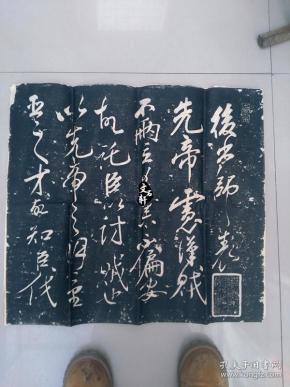 後出師之表
先帝慮漢賊
不兩立王業不偏安
故託臣以討賊也
以先帝之明量
臣之才故知臣伐
文軒
孔夫子旧书网